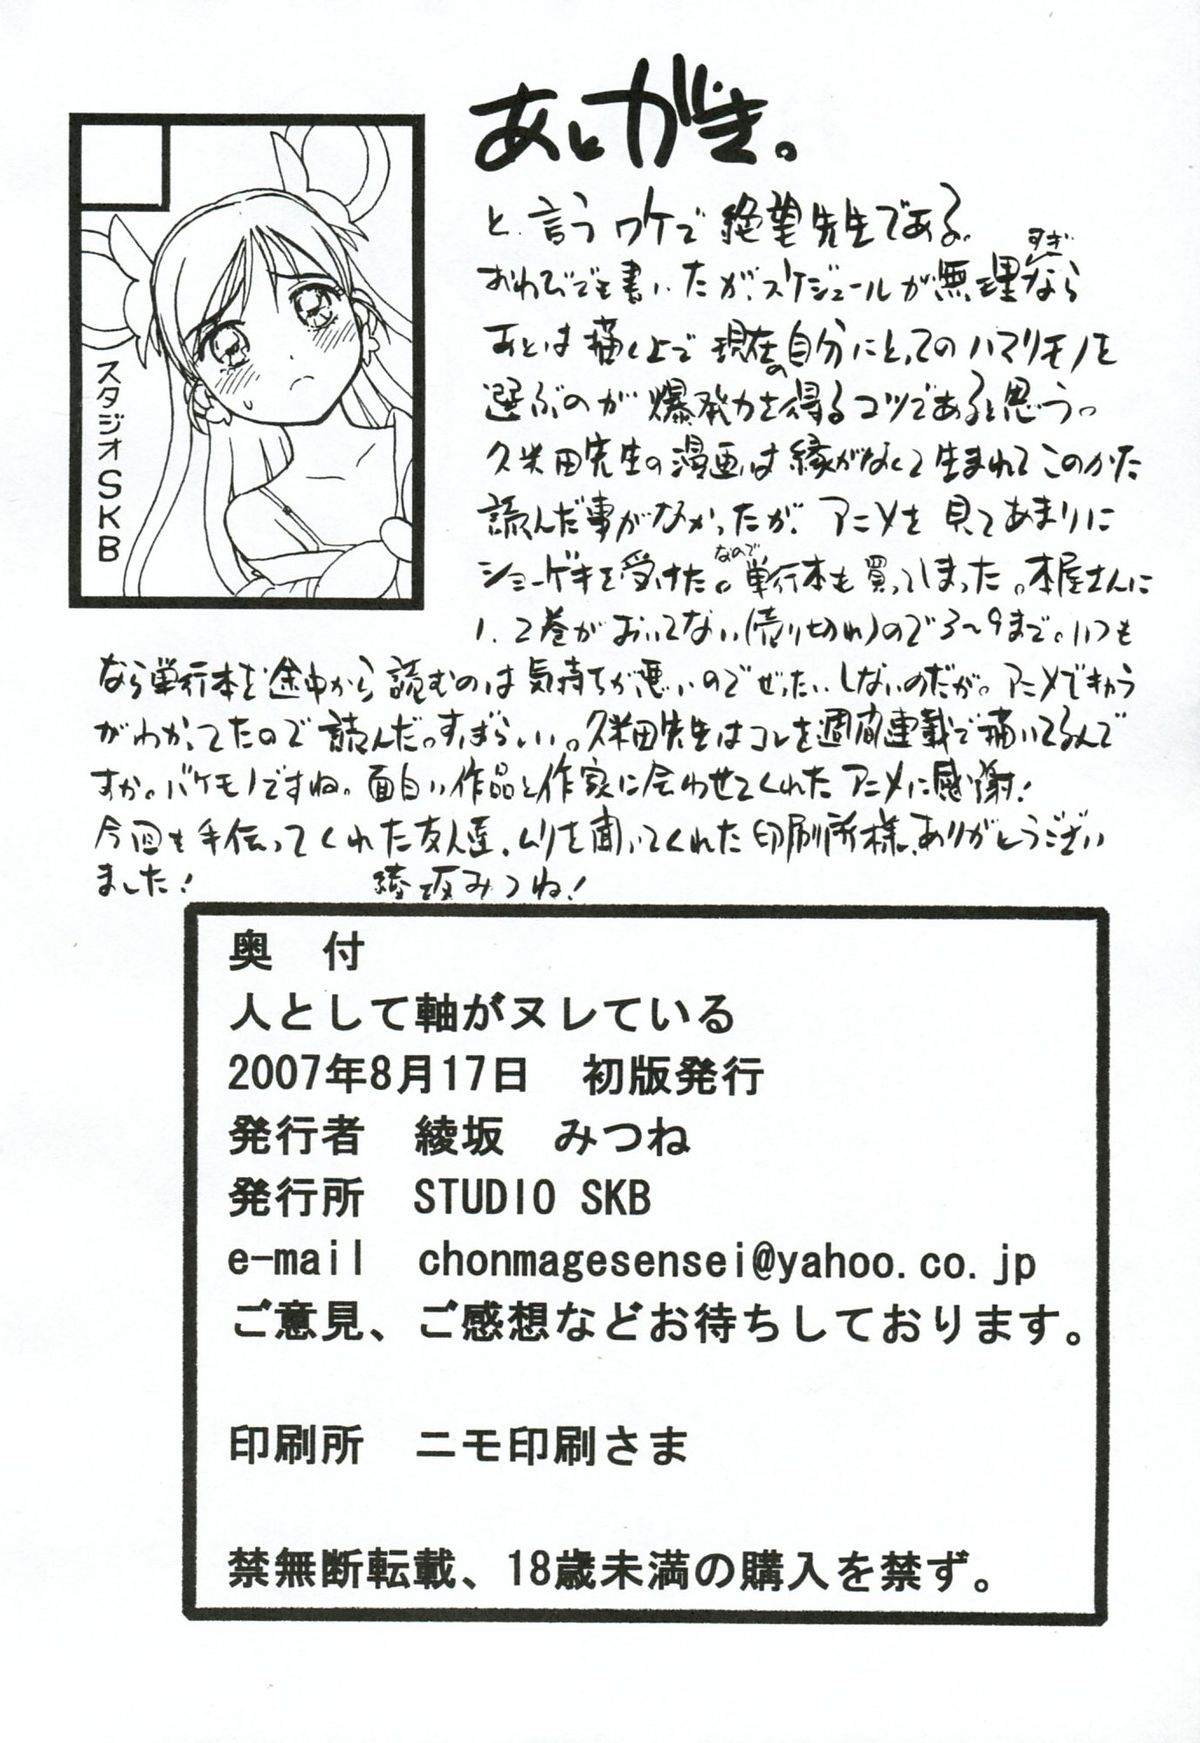 あとがき。
スタジオSKB
と言うワケで絶望先生である。
おわびでも書いたがスケジュールが無理すぎなら
あとは描く上で現在の自分にとってのハマリモノを
選ぶのが爆発力を得るコツであると思う。
久米田先生の漫画は縁がなくて生まれてこのかた
読んだ事がなかったが、アニメを見てあまりに
ショーゲキを受けた。なので単行本も買ってしまった。本屋さんに
1、2巻がおいてない(売り切れ)ので3〜9まで。いつも
なら単行本を途中から読むのは気持ちが悪いのでぜったいしないのだが。アニメできょう
がわかってたので読んだ。すばらしい。久米田先生はコレを週間連載で描いてるんで
すか。バケモノですね。面白い作品と作家に会わせてくれたアニメに感謝!
今回も手伝ってくれた友人達、ムリを聞いてくれた印刷所様、ありがとうござい
ました! 綾坂みつね!
奥 付
人として軸がヌレている
2007年8月17日 初版発行
発行者 綾坂 みつね
発行所 STUDIO SKB
e-mail chonmagesensei@yahoo.co.jp
ご意見、ご感想などお待ちしております。
印刷所 ニモ印刷さま
禁無断転載、18歳未満の購入を禁ず。